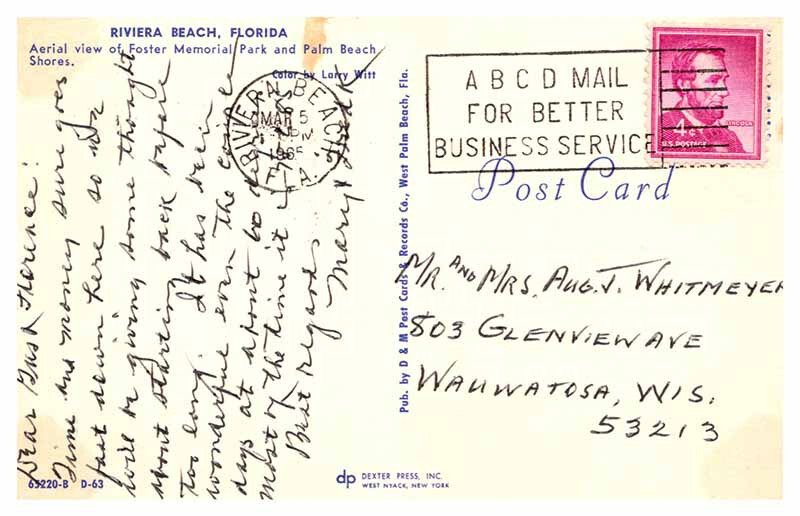 RIVIERA BEACH, FLORIDA
Aerial view of Foster Memorial Park and Palm Beach
Shores.
Color by Larry Witt
Dear Gus & Florence:
Time and money sure goes
fast down here so we
will be giving some thought
about starting back before
too long. It has been
wonderful even the
days at about 60
most of the time it
Best regards
Mary & Hank
65220-B D-63
dp DEXTER PRESS, INC.
WEST NYACK, NEW YORK
Pub. by D & M Post Cards & Records Co., West Palm Beach, Fla.
RIVIERA BEACH, FLA.
MAR 5
PM
1965
A B C D MAIL
FOR BETTER
BUSINESS SERVICE
LINCOLN
4¢
U.S. POSTAGE
Post Card
MR. AND MRS. AUG. J. WHITMEYER
803 GLENVIEW AVE
WAUWATOSA, WIS.
53213